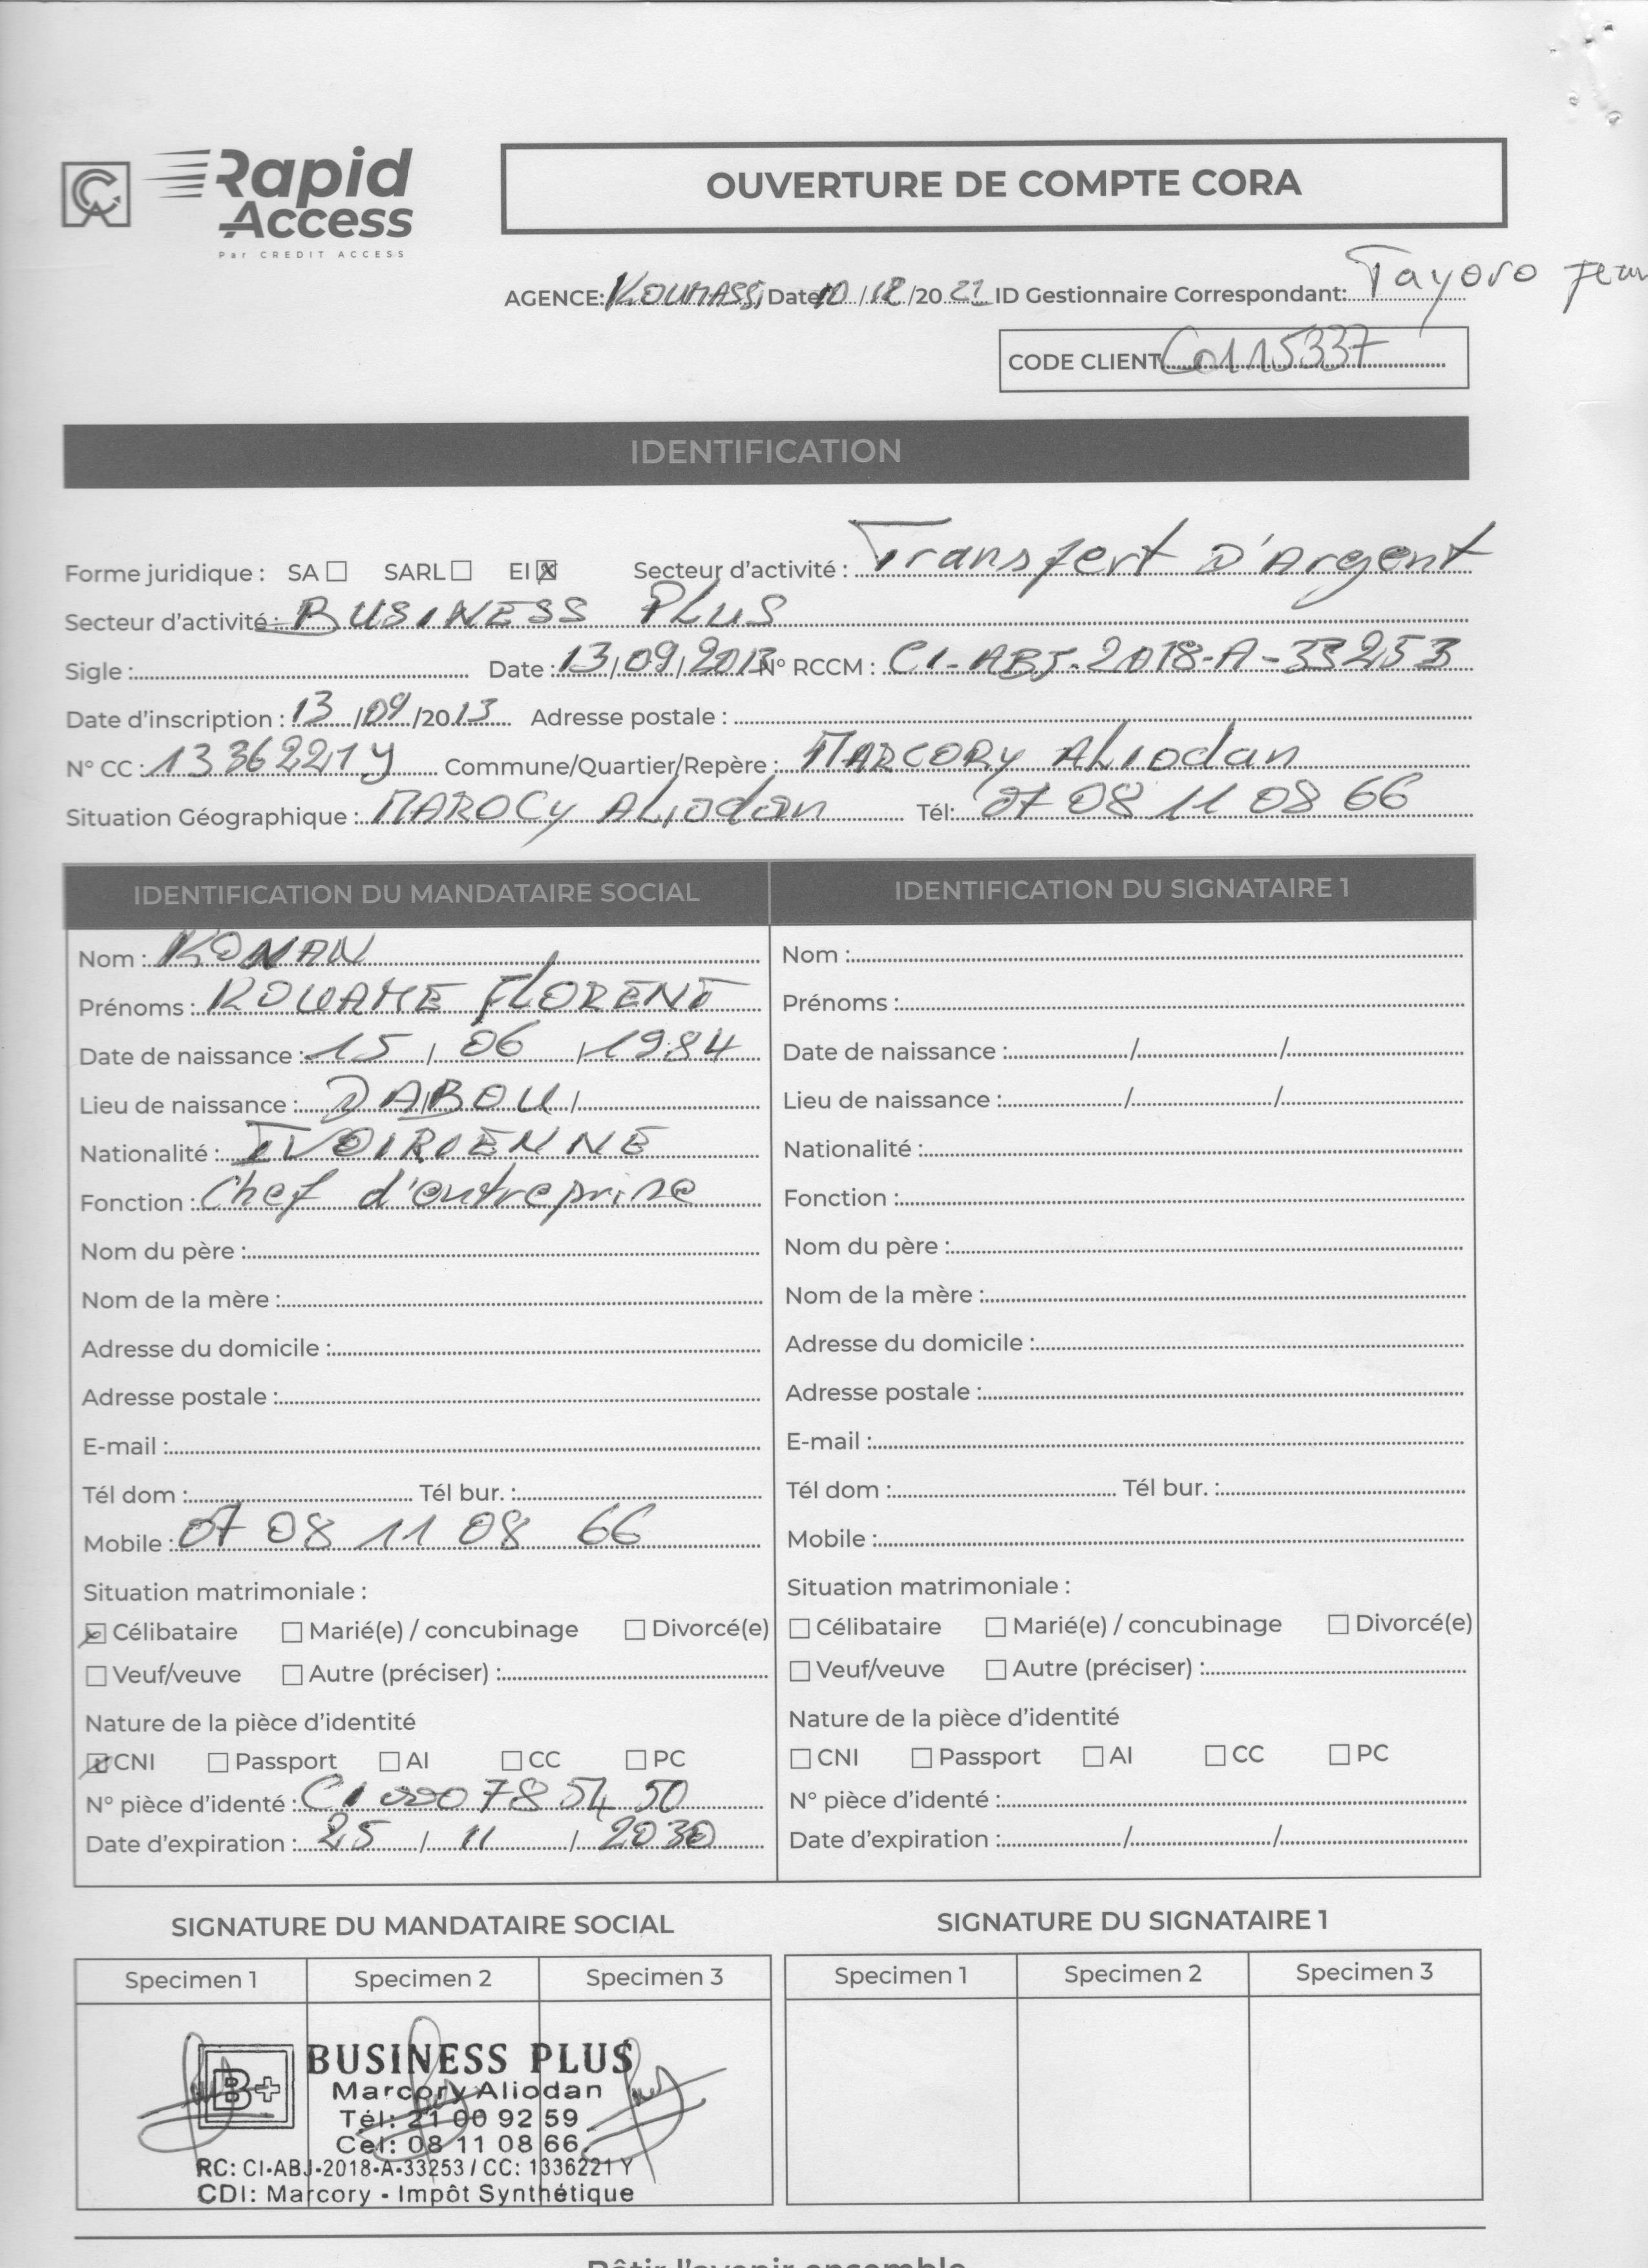 CA Rapid Access
Par CREDIT ACCESS
OUVERTURE DE COMPTE CORA
AGENCE: KOUMASSI Date 10/12/2021 ID Gestionnaire Correspondant: Tayoro
CODE CLIENT C0115337
IDENTIFICATION
Forme juridique : SA ☐ SARL ☐ EI ☒ Secteur d'activité : Transfert D'Argent
Secteur d'activité : BUSINESS PLUS
Sigle : Date : 13/09/2013 N° RCCM : CI-ABJ-2018-A-33253
Date d'inscription : 13/09/2013 Adresse postale :
N° CC : 1336221Y Commune/Quartier/Repère : MARCORY Aliodan
Situation Géographique : MAROCY Aliodan Tél: 07 08 11 08 66
IDENTIFICATION DU MANDATAIRE SOCIAL
Nom : KONAN
Prénoms : KOUAME FLORENT
Date de naissance : 15 / 06 / 1984
Lieu de naissance : DABOU /
Nationalité : IVOIRIENNE
Fonction : Chef d'entreprise
Nom du père :
Nom de la mère :
Adresse du domicile :
Adresse postale :
E-mail :
Tél dom : Tél bur. :
Mobile : 07 08 11 08 66
Situation matrimoniale :
☒ Célibataire ☐ Marié(e) / concubinage ☐ Divorcé(e)
☐ Veuf/veuve ☐ Autre (préciser) :
Nature de la pièce d'identité
☒ CNI ☐ Passport ☐ AI ☐ CC ☐ PC
N° pièce d'identé : CI 0007854 50
Date d'expiration : 25 / 11 / 2030
IDENTIFICATION DU SIGNATAIRE 1
Nom :
Prénoms :
Date de naissance : / /
Lieu de naissance : / /
Nationalité :
Fonction :
Nom du père :
Nom de la mère :
Adresse du domicile :
Adresse postale :
E-mail :
Tél dom : Tél bur. :
Mobile :
Situation matrimoniale :
☐ Célibataire ☐ Marié(e) / concubinage ☐ Divorcé(e)
☐ Veuf/veuve ☐ Autre (préciser) :
Nature de la pièce d'identité
☐ CNI ☐ Passport ☐ AI ☐ CC ☐ PC
N° pièce d'identé :
Date d'expiration : / /
SIGNATURE DU MANDATAIRE SOCIAL
Specimen 1 Specimen 2 Specimen 3
B+ BUSINESS PLUS
Marcory Aliodan
Tél: 21 00 92 59
Cel: 08 11 08 66
RC: CI-ABJ-2018-A-33253 / CC: 1336221 Y
CDI: Marcory - Impôt Synthétique
SIGNATURE DU SIGNATAIRE 1
Specimen 1 Specimen 2 Specimen 3
Bâtir l'avenir ensemble